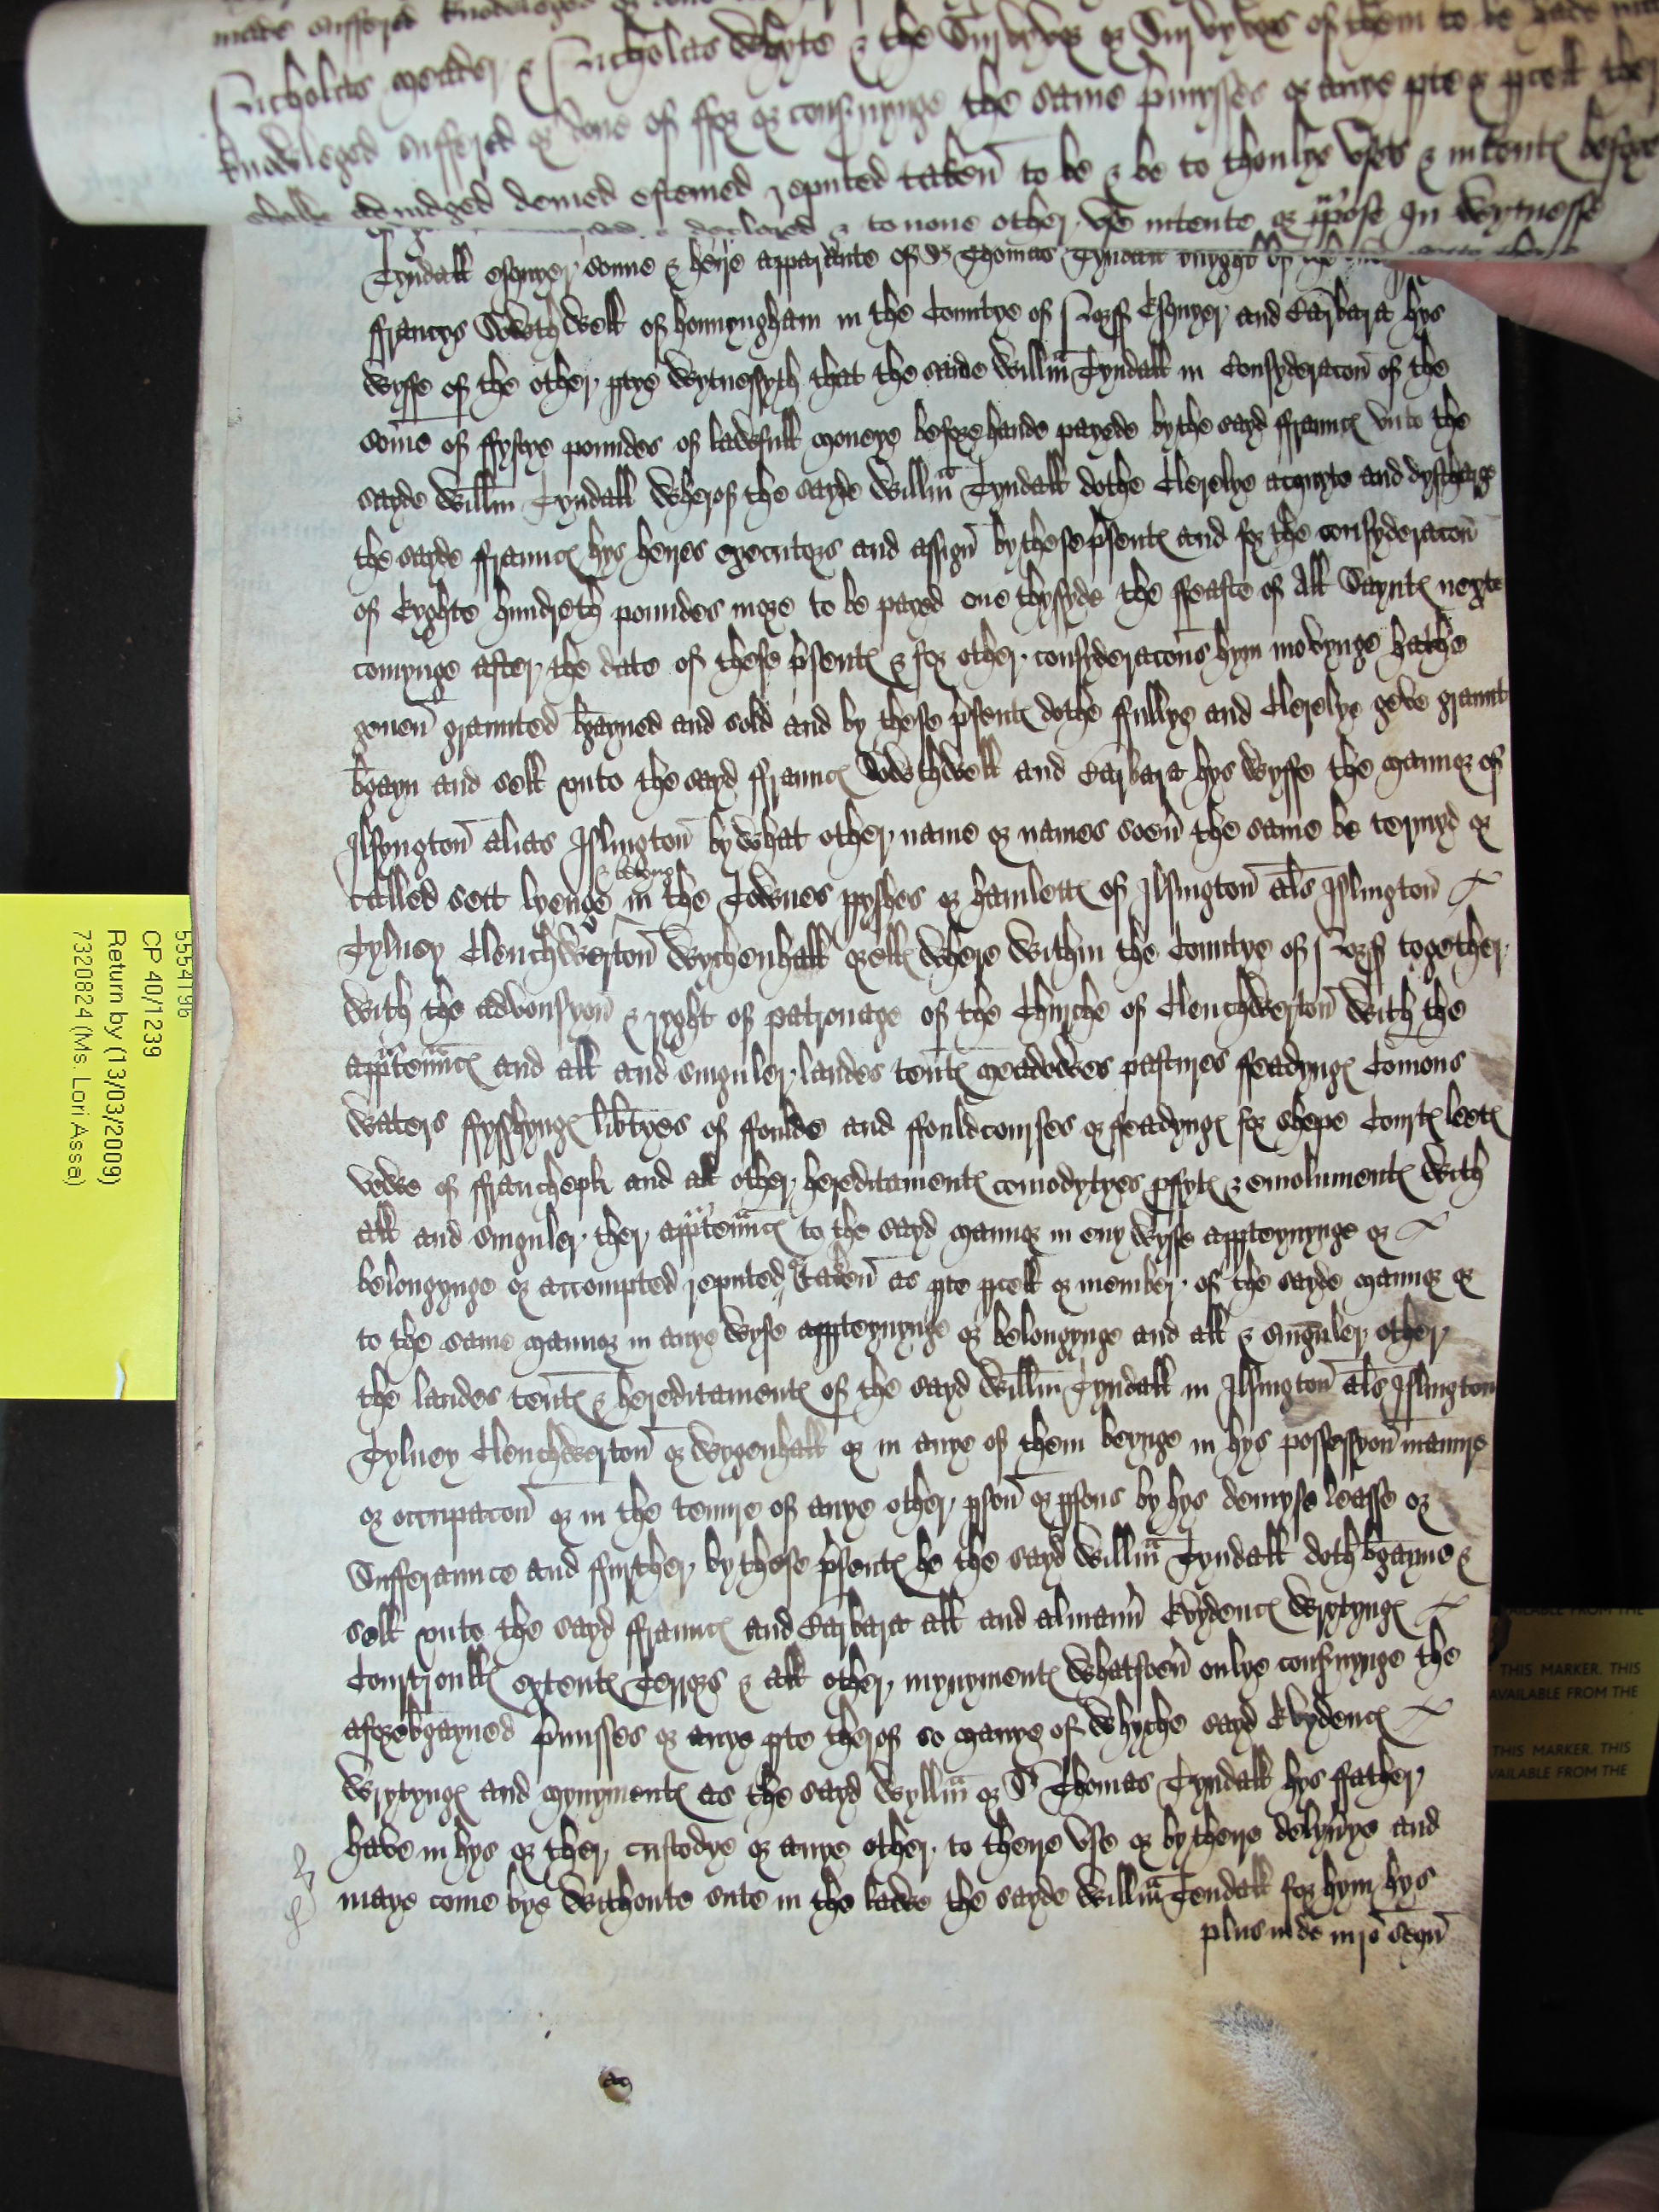 made suffered knowleged
Nicholas meader & Nicholas Whyte & the Survyvor or Survyvors of them to be hade
knowleged suffered or done of for or consernynge the same p'misses or anye pte or pcell
shalbe adiudged demed estemed reputed taken to be & be to thonlye uses & intente before
declared & to none other use intente or ppose In Wytnesse
Tyndall esquyer sonne & heire apparante of Sr Thomas Tyndall knyght
ffrancys Sowthwell of honnyngham in the Countye of Norff Esquyer and Barbara hys
wyffe of the other ptye wytnessyth that the saide Willm Tyndall in Consyderacon of the
some of ffyftye poundes of lawfull moneye before hande payede by the sayd ffraunc unto the
sayde Willm Tyndall wherof the sayde Willm Tyndall dothe Clerelye acquyte and dyscharge
the sayde ffraunc hys heyres executors and assign by these psent and for the consyderacon
of Eyghte hundreth poundes more to be payed one thysyde the ffeaste of All Saynt nexte
comynge after the date of these psent & for other consyderacons hym movynge hathe
geuen graunted bgayned and sold and by these psent dothe ffullye and Clerelye geve graunt
bgayn and sell unto the sayd ffraunc Sowthwell and Barbara hys wyffe the mannor of
Ilsyngton alias Islington by what other name or names soeu the same be termyd or
called sett lyenge & beinge in the Townes pyshes or hamlett of Ilsington als Islington
Tylney Clenchwerton Wygenhall or ells where within the Countye of Norff together
with the advousyon & ryght of patronage of the Churche of Clenchwerton with the
apptennc and all and singuler landes tent meadowes pastures ffeadyng Comons
waters ffysshyng libtyes of ffoulde and ffouldcourses or ffeadyng for shepe Court leet
vewe of ffranchepl and all other hereditament comodytyes pfyt & emolument with
all and singuler ther apptennc to the sayd mannor in eny wyse appteynynge or
belongynge or accompted reputed or taken as pte pcell or member of the sayde mannor or
to the same mannor in anye wyse appteynynge or belongynge and all & singuler other
the landes tent & hereditament of the sayd Willm Tyndall in Ilsington als Islington
Tylney Clenchwerton or Wygenhall or in anye of them beynge in hys possessyon manure
or occupacon or in the tenure of anye other pson or psons by hys demyse leasse or
Sufferaunce and ffurther by these psent he the sayd Willm Tyndall doth bgayne &
sell unto the sayd ffraunc and Barbara all and almann Evydenc wrytyng
Courtroull extent Terrors & all other mynyment whatsoeu onlye consnynge the
aforebgayned pmisses or anye pte therof so manye of whyche sayd Evydenc
wrytyng and mynyment as the sayd Wyllm or Sr Thomas Tyndall hys ffather
have in hys or ther custodye or anye other to theire use or by theire delyvye and
maye come bye withoute sute in the lawe the sayde Willm Tendall for hym hys
plus inde in ro sequ
5554196
CP 40/1239
Return by (13/03/2009)
7320824 (Ms. Lori Assa)
AVAILABLE FROM THE
THIS MARKER. THIS
AVAILABLE FROM THE
THIS MARKER. THIS
AVAILABLE FROM THE